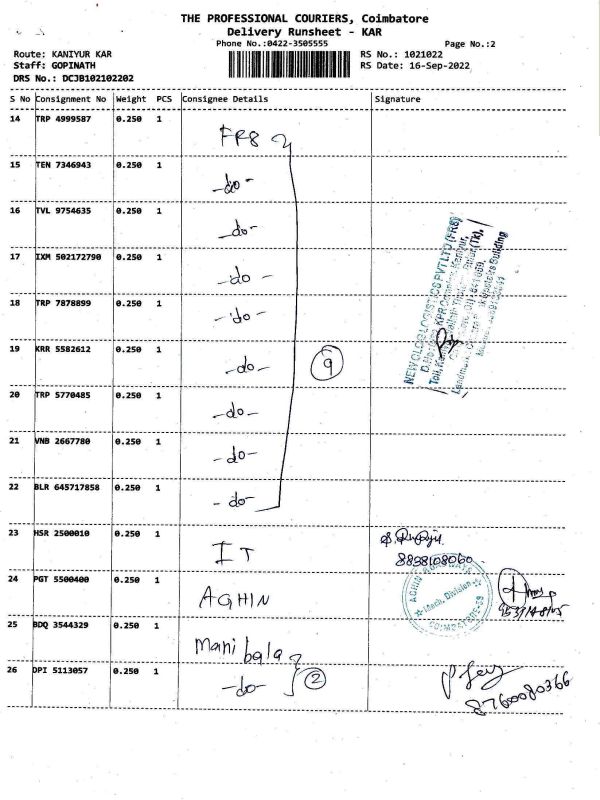 THE PROFESSIONAL COURIERS, Coimbatore
Delivery Runsheet - KAR
Phone No.:0422-3505555 Page No.:2
Route: KANIYUR KAR RS No.: 1021022
Staff: GOPINATH RS Date: 16-Sep-2022
DRS No.: DCJB102102202
S No Consignment No Weight PCS Consignee Details Signature
14 TRP 4999587 0.250 1 FR8
15 TEN 7346943 0.250 1 -do-
16 TVL 9754635 0.250 1 -do-
17 IXM 502172790 0.250 1 -do-
18 TRP 7878899 0.250 1 -do-
19 KRR 5582612 0.250 1 -do- 9
20 TRP 5770485 0.250 1 -do-
21 VNB 2667780 0.250 1 -do-
22 BLR 645717858 0.250 1 -do-
NEW GLOB LOGISTICS PVT LTD (FR8)
23 HSR 2500010 0.250 1 IT
8838108060
24 PGT 5500400 0.250 1 AGHIN
AGHIN
Mech. Division
COIMBATORE-59
25 BDQ 3544329 0.250 1 Mani bala
26 DPI 5113057 0.250 1 -do- 2
8760080366